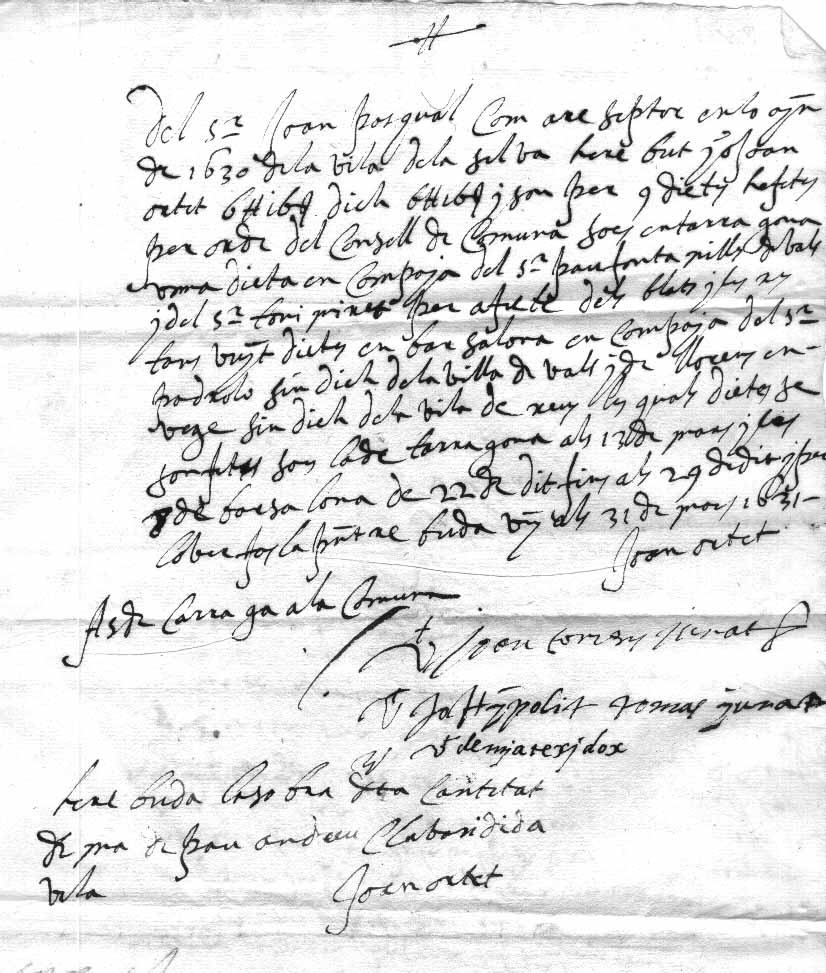 Del Sr Joan pasqual Com are septor en lo ajn
de 1630 de la vila de la selva here but yo Joan
ortet 6 # 16 § dich 6 # 16 § y son per 9 dietes hefetes
per orde del Consell de Comuna soes en tarra gona
vnna dieta en Compoja del Sr pau fonta nills de vals
y del Sr toni prinet per afete dels blets y les
tans vuyt dietes en bar salona en Compoja del Sr
padrolo sin dich de la villa de vals y de llorens
vege sin dich de la vila de reus les quals dietes se
son fetes soes la de tarragona als 13 de mars y les
8 de barsa lona de 22 de dit fins als 29 de dit y per
lo ver fas la pnt re buda vuy als 31 de mars 1631
Joan ortet
As de Carra ga a la Comuna
Joan torres jurat
Jo Hypolit tomas jurat
de mja rexidor
here buda la so bra dta Cantitat
de ma de pau andreu Clavari di da
vila Joan ortet